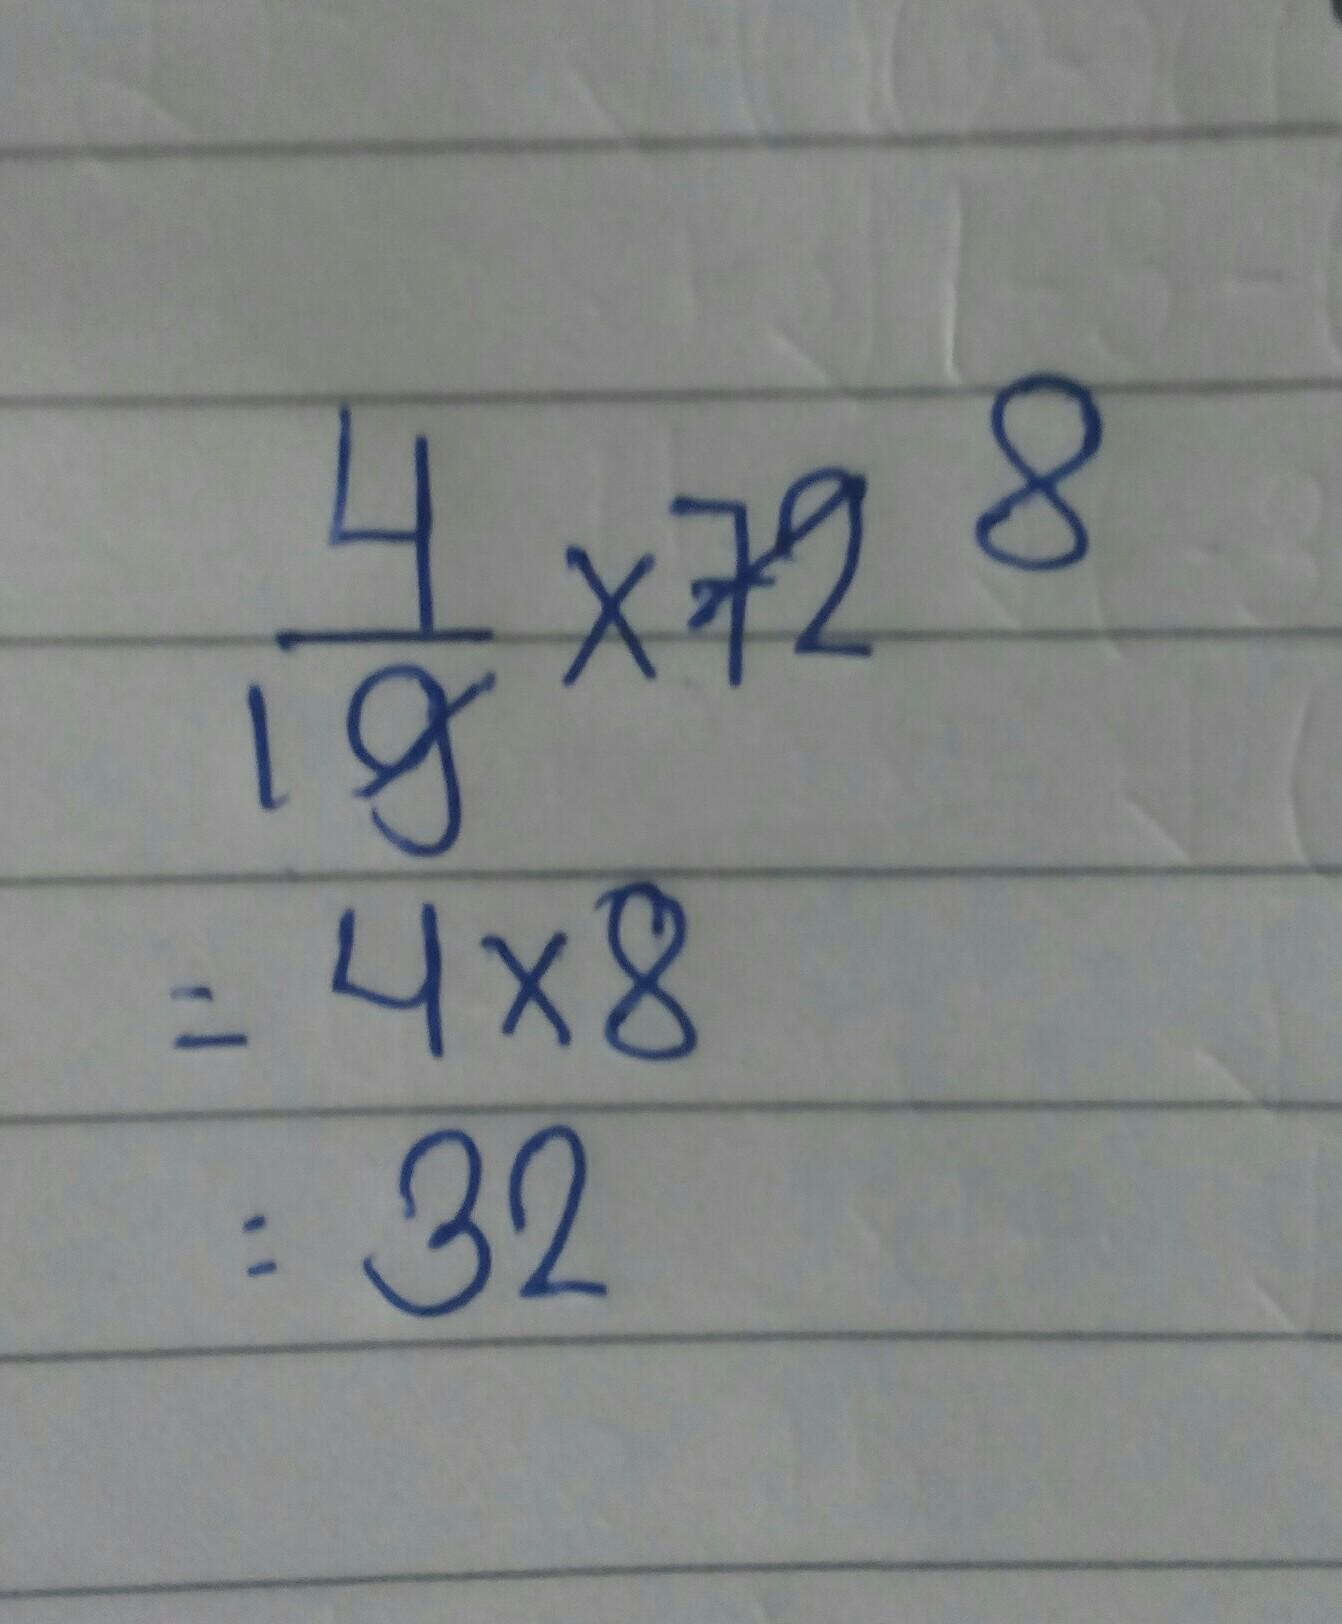 4/9 × 72 8
1
= 4×8
= 32